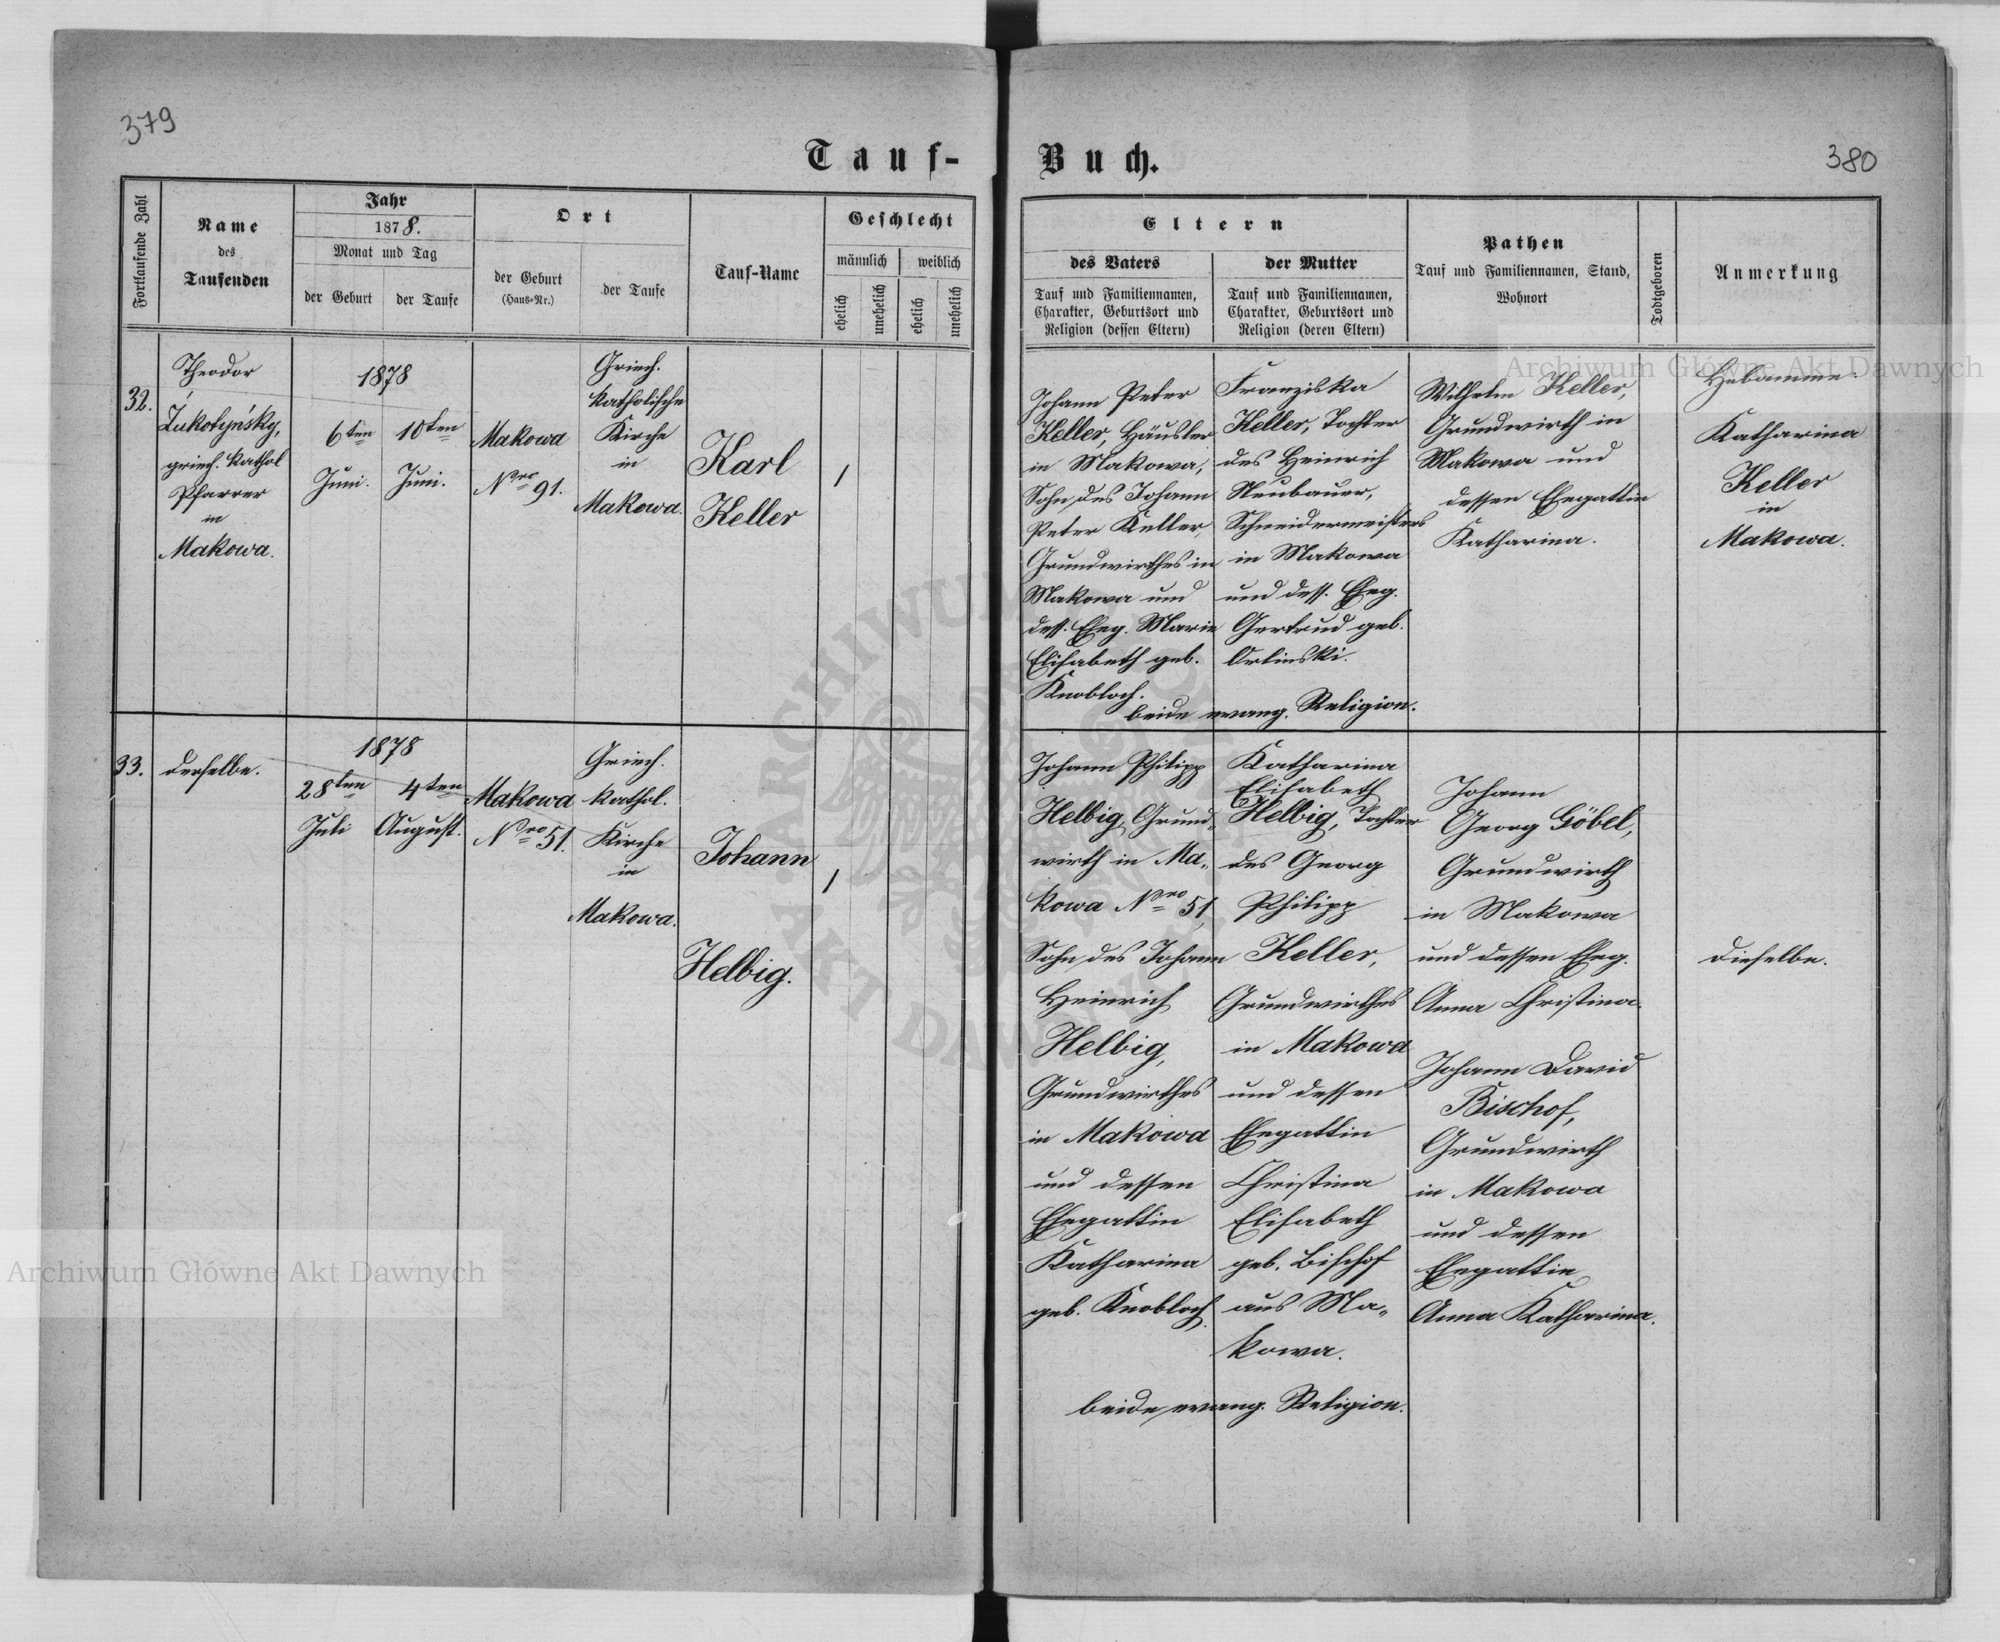 379
Tauf-
Buch.
380
Fortlaufende Zahl
Name
des
Taufenden
Jahr
1878.
Monat und Tag
der Geburt
der Taufe
Ort
der Geburt
(Haus-Nr.)
der Taufe
Tauf-Name
Geschlecht
männlich
weiblich
ehelich
unehelich
ehelich
unehelich
Eltern
des Vaters
Tauf und Familiennamen,
Charakter, Geburtsort und
Religion (dessen Eltern)
der Mutter
Tauf und Familiennamen,
Charakter, Geburtsort und
Religion (deren Eltern)
Pathen
Tauf und Familiennamen, Stand,
Wohnort
Todtgeboren
Anmerkung
32.
Theodor
Żukotyńsky,
griech. kathol
Pfarrer
in
Makowa.
1878
6ten
Juni.
10ten
Juni.
Makowa
Nro 91.
Griech.
katholische
Kirche
in
Makowa.
Karl
Keller
1
Johann Peter
Keller, Häusler
in Makowa,
Sohn des Johann
Peter Keller,
Grundwirthes in
Makowa und
dess. Eheg. Marie
Elisabeth geb.
Knobloch.
Franziska
Keller, Tochter
des Heinrich
Neubauer,
Schneidermeisters
in Makowa
und dess. Eheg.
Gertrud geb.
Orlinski.
beide evang. Religion.
Wilhelm Keller,
Grundwirth in
Makowa und
dessen Ehegattin
Katharina.
Hebamme
Katharina
Keller
in
Makowa.
33.
derselbe.
1878
28ten
Juli
4ten
August.
Makowa
Nro 51.
Griech.
kathol.
Kirche
in
Makowa.
Johann
Helbig.
1
Johann Philipp
Helbig, Grund„
wirth in Ma„
kowa Nro 51,
Sohn des Johann
Heinrich
Helbig,
Grundwirthes
in Makowa
und dessen
Ehegattin
Katharina
geb. Knobloch.
Katharina
Elisabeth
Helbig, Tochter
des Georg
Philipp
Keller,
Grundwirthes
in Makowa
und dessen
Ehegattin
Christina
Elisabeth
geb. Bischof
aus Ma„
kowa.
beide evang. Religion.
Johann
Georg Göbel,
Grundwirth
in Makowa
und dessen Eheg.
Anna Christina.
Johann David
Bischof,
Grundwirth
in Makowa
und dessen
Ehegattin
Anna Katharina.
dieselbe.
Archiwum Główne Akt Dawnych
Archiwum Główne Akt Dawnych